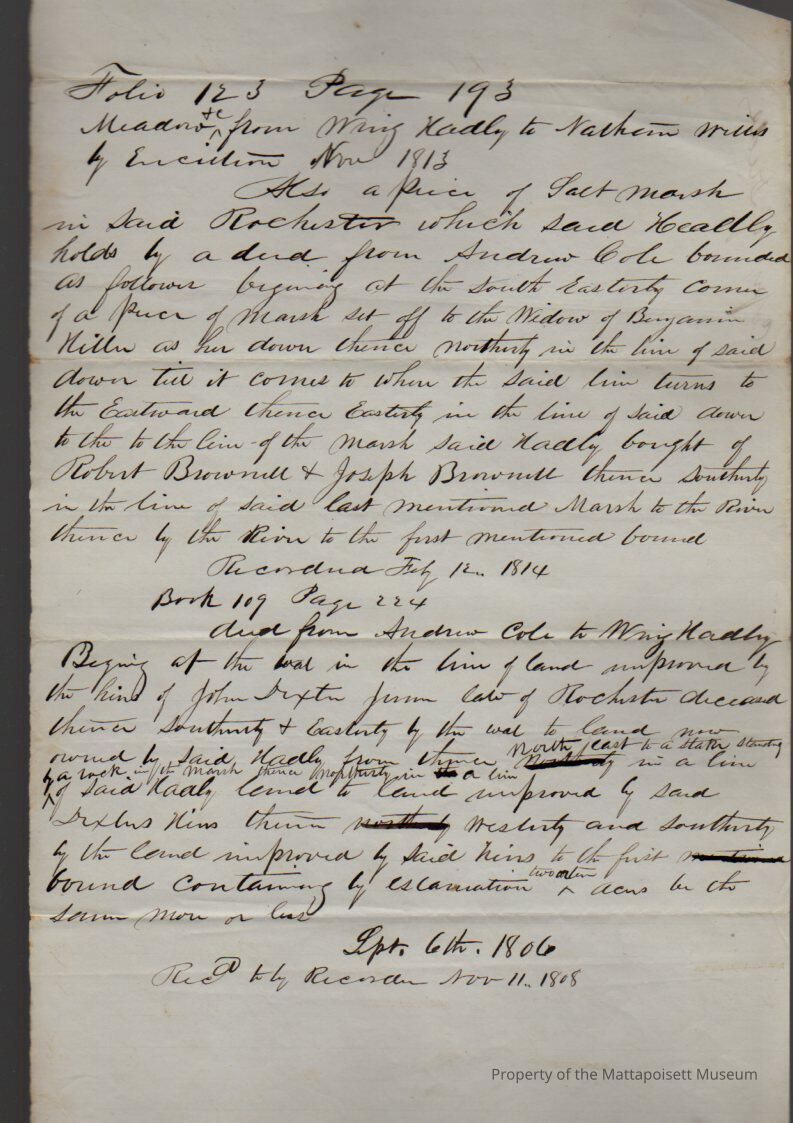 Folio 123 Page 193
Meadow &c from Wing Hadly to Nathan Willis
by Excution Nov 1813
Also a piece of Salt marsh
in said Rochester which said Headly
holds by a deed from Andrew Cole bounded
as follows begining at the South Easterly corner
of a piece of marsh set off to the Widow of Benjamin
Hiller as her dower thence northerly in the line of said
dower till it comes to where the said line turns to
the Eastward thence Easterly in the line of said dower
to the to the line of the marsh said Hadly bought of
Robert Brownell & Joseph Brownell thence southerly
in the line of said last mentioned Marsh to the River
thence by the River to the first mentioned bound
Recorded Feb 12. 1814
Book 109 Page 224
deed from Andrew Cole to Wing Hadly
Begining at the wal in the line of land improved by
the hirs of John Dexter late of Rochester deceased
thence Southerly & Easterly by the wal to land now
owned by said Hadly from thence north east to a stake standing in a line
by a rock in the marsh thence northerly in a line
of said Hadly land to land improved by said
Dexters Hirs thence westerly and southerly
by the land improved by said hirs to the first
bound containing by estamation two acers be the
same more or less
Spt. 6th. 1806
Recd by Recorder Nov 11. 1808
Property of the Mattapoisett Museum